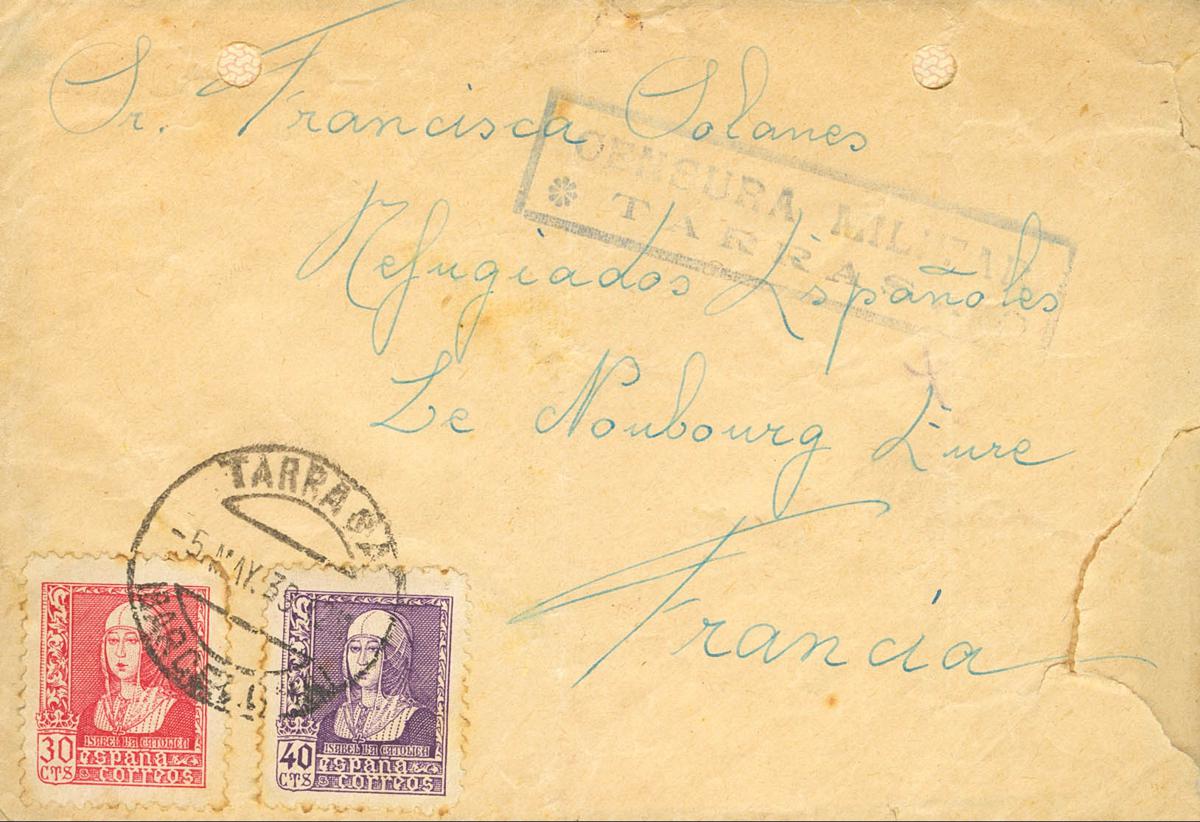 Sr. Francisca Solanes
CENSURA MILITAR
TARRASA
Refugiados Españoles
Le Noubourg Eure
Francia
TARRASA
-5.MAY.39
BARCELONA
30
CTS
ISABEL LA CATOLICA
españa
correos
40
CTS
ISABEL LA CATOLICA
españa
correos